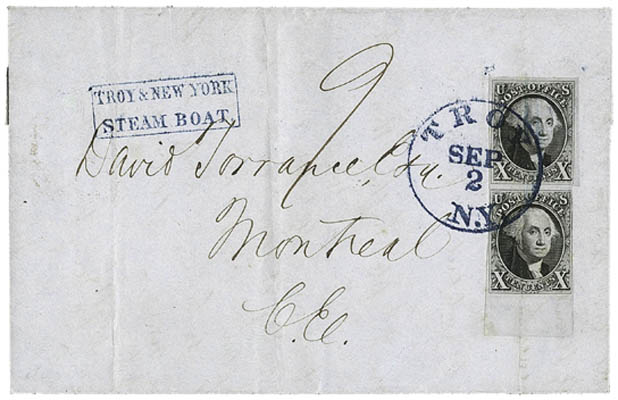 TROY & NEW YORK
STEAM BOAT
9
David Torrance Esq.
Montreal
C.E.
TROY
SEP
2
N.Y.
U S
POST OFFICE
X TEN CENTS X
U S
POST OFFICE
X TEN CENTS X